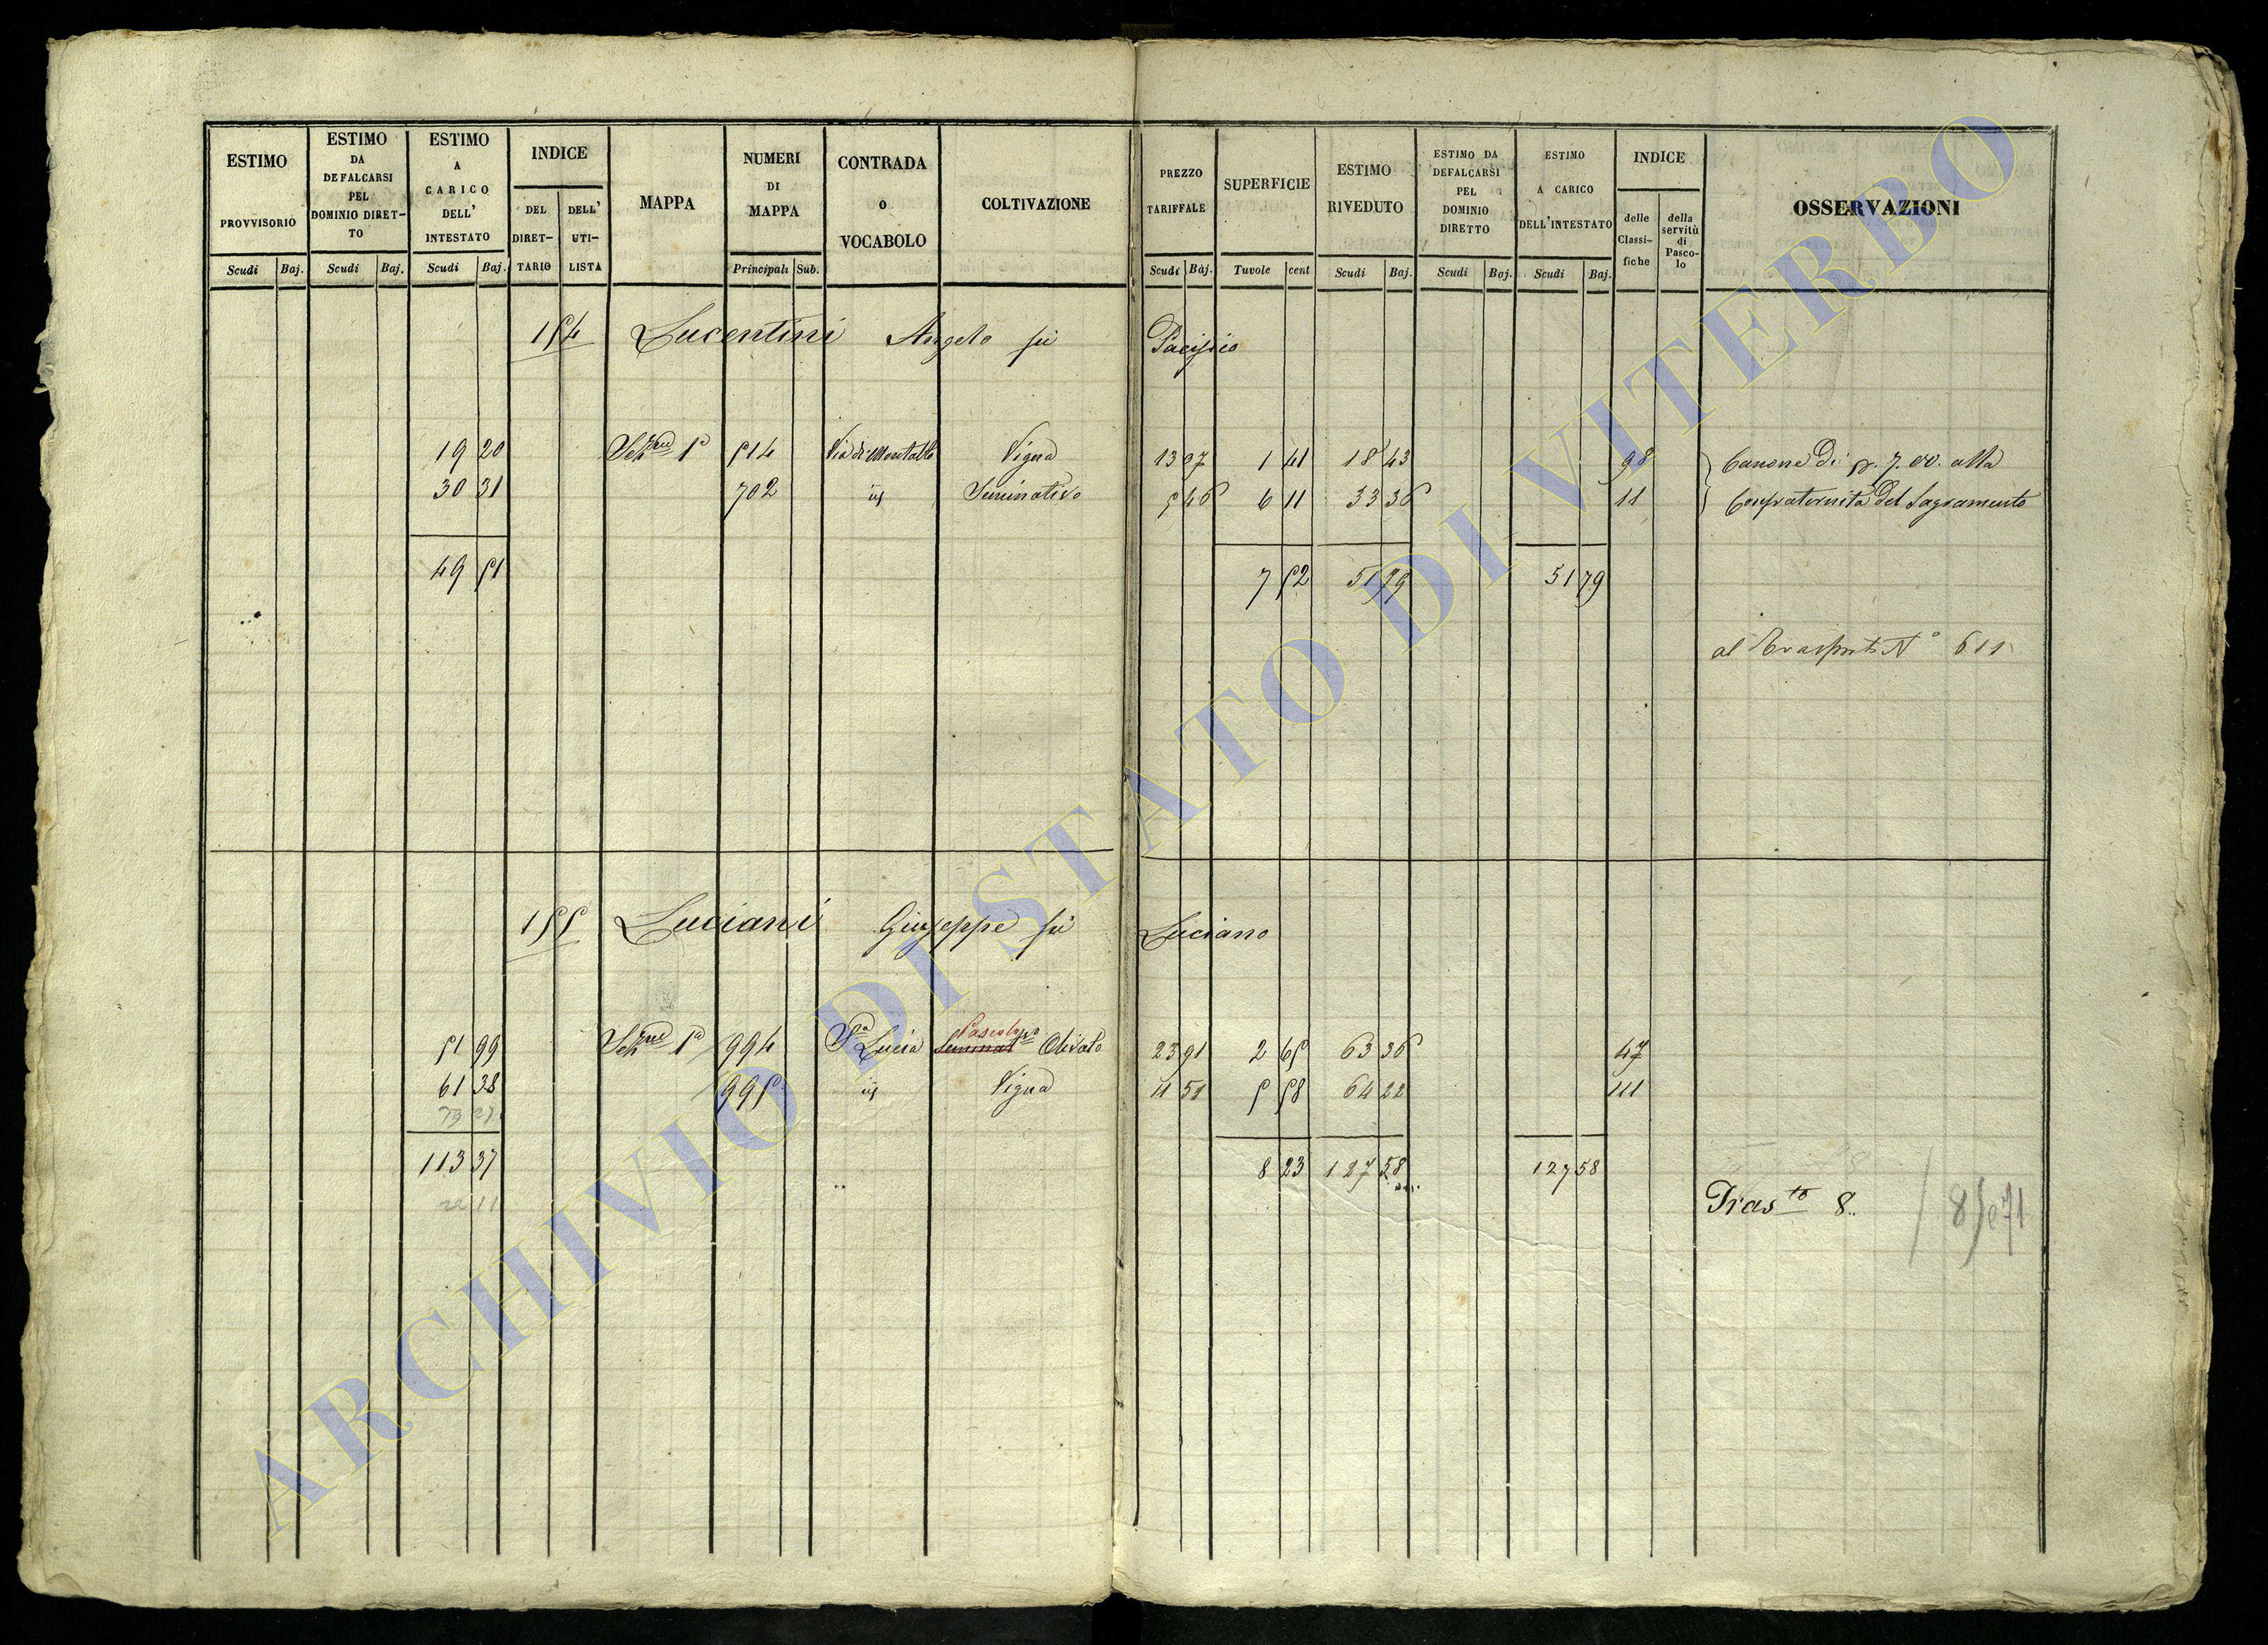 ESTIMO PROVVISORIO
Scudi Baj.
ESTIMO DA DEFALCARSI PEL DOMINIO DIRETTO
Scudi Baj.
ESTIMO A CARICO DELL' INTESTATO
Scudi Baj.
INDICE
DEL DIRETTARIO
DELL' UTILISTA
MAPPA
NUMERI DI MAPPA
Principali Sub.
CONTRADA o VOCABOLO
COLTIVAZIONE
PREZZO TARIFFALE
Scudi Baj.
SUPERFICIE
Tavole cent
ESTIMO RIVEDUTO
Scudi Baj.
ESTIMO DA DEFALCARSI PEL DOMINIO DIRETTO
Scudi Baj.
ESTIMO A CARICO DELL'INTESTATO
Scudi Baj.
INDICE
delle Classifiche
della servitù di Pascolo
OSSERVAZIONI
154 Lucentini Angelo fu Pacifico
19 20 Sezne 1a 514 Via di Montalto Vigna 13 07 1 41 18 43 98 Canone di p. 7. 00. alla
30 31 702 iij Seminativo 5 46 6 11 33 36 11 Confraternita del Sagramento
49 51 7 52 51 79 51 79
al Trasporto N° 611
155 Luciani Giuseppe fu Luciano
Pascolivo
51 99 Sezne 1a 994 Sa Lucia Seminatvo Olivato 23 91 2 65 63 36 47
61 38 995 iij Vigna 11 51 5 58 64 22 111
113 37 8 23 127 58 127 58
Trasto 8..
ARCHIVIO DI STATO DI VITERBO